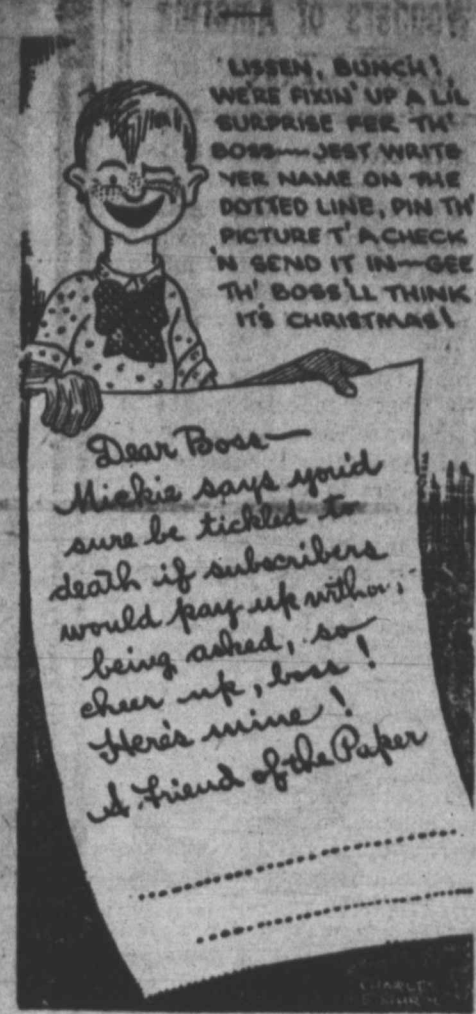 LISSEN, BUNCH!
WE'RE FIXIN' UP A LIL
SURPRISE FER TH'
BOSS—JEST WRITE
YER NAME ON THE
DOTTED LINE, PIN TH'
PICTURE T' A CHECK
'N SEND IT IN—GEE
TH' BOSS'LL THINK
IT'S CHRISTMAS!
Dear Boss—
Mickie says you'd
sure be tickled to
death if subscribers
would pay up
being asked, so
cheer up, boss!
Here's mine!
A Friend of the Paper
CHARLES